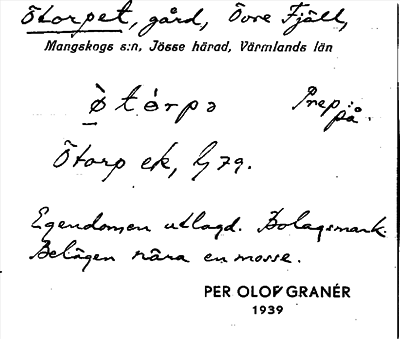 Ötorpet, gård, Övre Fjäll,
Mangskogs s:n, Jösse härad, Värmlands län
ø̀ t é r p ə Prep.: på.
Ötorp ek, Lj 79.
Egendomen utlagd. Bolagsmark.
Belägen nära en mosse.
PER OLOF GRANÉR
1939